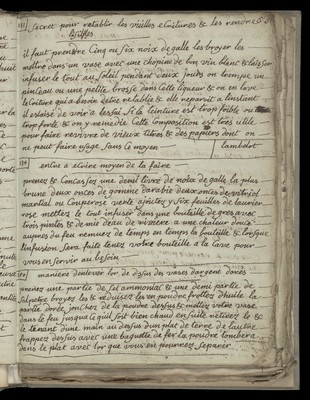 Secret pour retablir les vieilles ecritures & les rendre
lisibles
il faut prendre Cinq ou Six noix de galle les broyer les
mettre dans un vase avec une chopine de bon vin blanc & laisser
infuser le tout au Soleil pendant deux jours on trempe un
pinceau ou une petite brosse dans cette liqueur & on en lave
lecriture qui a besoin detre retablie & elle reparoit a linstant
il est aisé de voir a lessai Si la teinture est trop foible ou
trop forte & on y remedie Cette Composition est tres utile
pour faire revivre de vieux titres & des papiers dont on
ne peut faire usage Sans Ce moyen
encre a ecrire moyen de la faire
prenez & Concassez une demi livre de noix de galle la plus
brune deux onces de gomme darabie deux onces de vitriol
martial ou Couperose verte ajoutez y Six feuilles de laurier
rose mettez le tout infuser dans une bouteille de gres avec
trois pintes & demie deau de riviere a une chaleur douce
aupres du feu remuez de temps en temps la bouteille & lorsque
linfusion Sera faite tenez votre bouteille a la Cave pour
vous en Servir au besoin
maniere denlever lor de dessus des vases dargent dorés
prenez une partie de Sel ammoniac & une demi partie de
Salpetre broyez les & reduisez les en poudre frottez dhuile la
partie dorée jonchez de la poudre dessus & mettez votre vase
dans le feu jusqua Ce quil Soit bien chaud ensuite retirez le &
le tenant dune main au dessus dun plat de terre de lautre
frappez dessus avec une baguette de fer la poudre tombera
dans le plat avec lor que vous en pourrez Separer